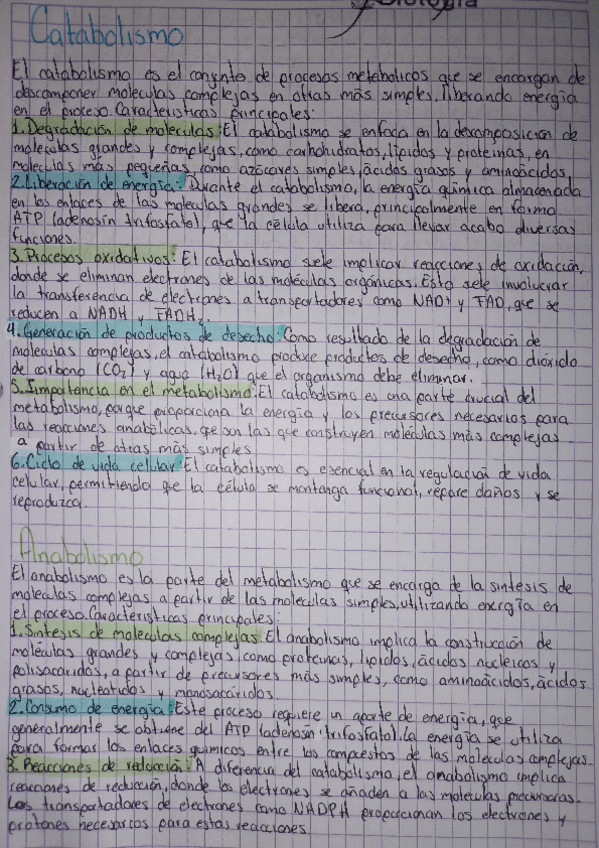 Biología
Catabolismo
El catabolismo es el conjunto de procesos metabolicos que se encargan de
descomponer moleculas complejas en otras más simples, liberando energía
en el proceso. Caracteristicas principales:
1. Degradación de moleculas: El catabolismo se enfoca en la descomposición de
moleculas grandes y complejas, como carbohidratos, lípidos y proteinas, en
moleculas más pequeñas, como azúcares simples, ácidos grasos y aminoácidos.
2. Liberación de energía: Durante el catabolismo, la energía química almacenada
en los enlaces de las moleculas grandes se libera, principalmente en forma
ATP (adenosín trifosfato), que la célula utiliza para llevar acabo diversas
funciones.
3. Procesos oxidativos: El catabolismo suele implicar reacciones de oxidación,
donde se eliminan electrones de las moléculas orgánicas. Esto suele involucrar
la transferencia de electrones a transportadores como NAD+ y FAD, que se
reducen a NADH y FADH2.
4. Generación de productos de desecho: Como resultado de la degradación de
moleculas complejas, el catabolismo produce productos de desecho, como dióxido
de carbono (CO2) y agua (H2O) que el organismo debe eliminar.
5. Importancia en el metabolismo: El catabolismo es una parte crucial del
metabolismo, porque proporciona la energía y los precursores necesarios para
las reacciones anabólicas, que son las que construyen moléculas más complejas
a partir de otras más simples
6. Ciclo de vida celular: El catabolismo es esencial en la regulación de vida
celular, permitiendo que la célula se mantenga funcional, repare daños y se
reproduzca.
Anabolismo
El anabolismo es la parte del metabolismo que se encarga de la sintesis de
moleculas complejas a partir de las moleculas simples, utilizando energía en
el proceso. Caracteristicas principales:
1. Sintesis de moleculas complejas: El anabolismo implica la construcción de
moléculas grandes y complejas, como proteinas, lipidos, ácidos nucleicos y
polisacaridos, a partir de precursores más simples, como aminoácidos, ácidos
grasos, nucleotidos y monosacáridos.
2. Consumo de energía: Este proceso requiere un aporte de energía, que
generalmente se obtiene del ATP (adenosin trifosfato). la energía se utiliza
para formar los enlaces quimicos entre los compuestos de las moleculas complejas.
3. Reacciones de reducción: A diferencia del catabolismo, el anabolismo implica
reacciones de reducción, donde los electrones se añaden a las moleculas precursoras.
Los transportadores de electrones como NADPH proporcionan los electrones y
protones necesarios para estas reacciones